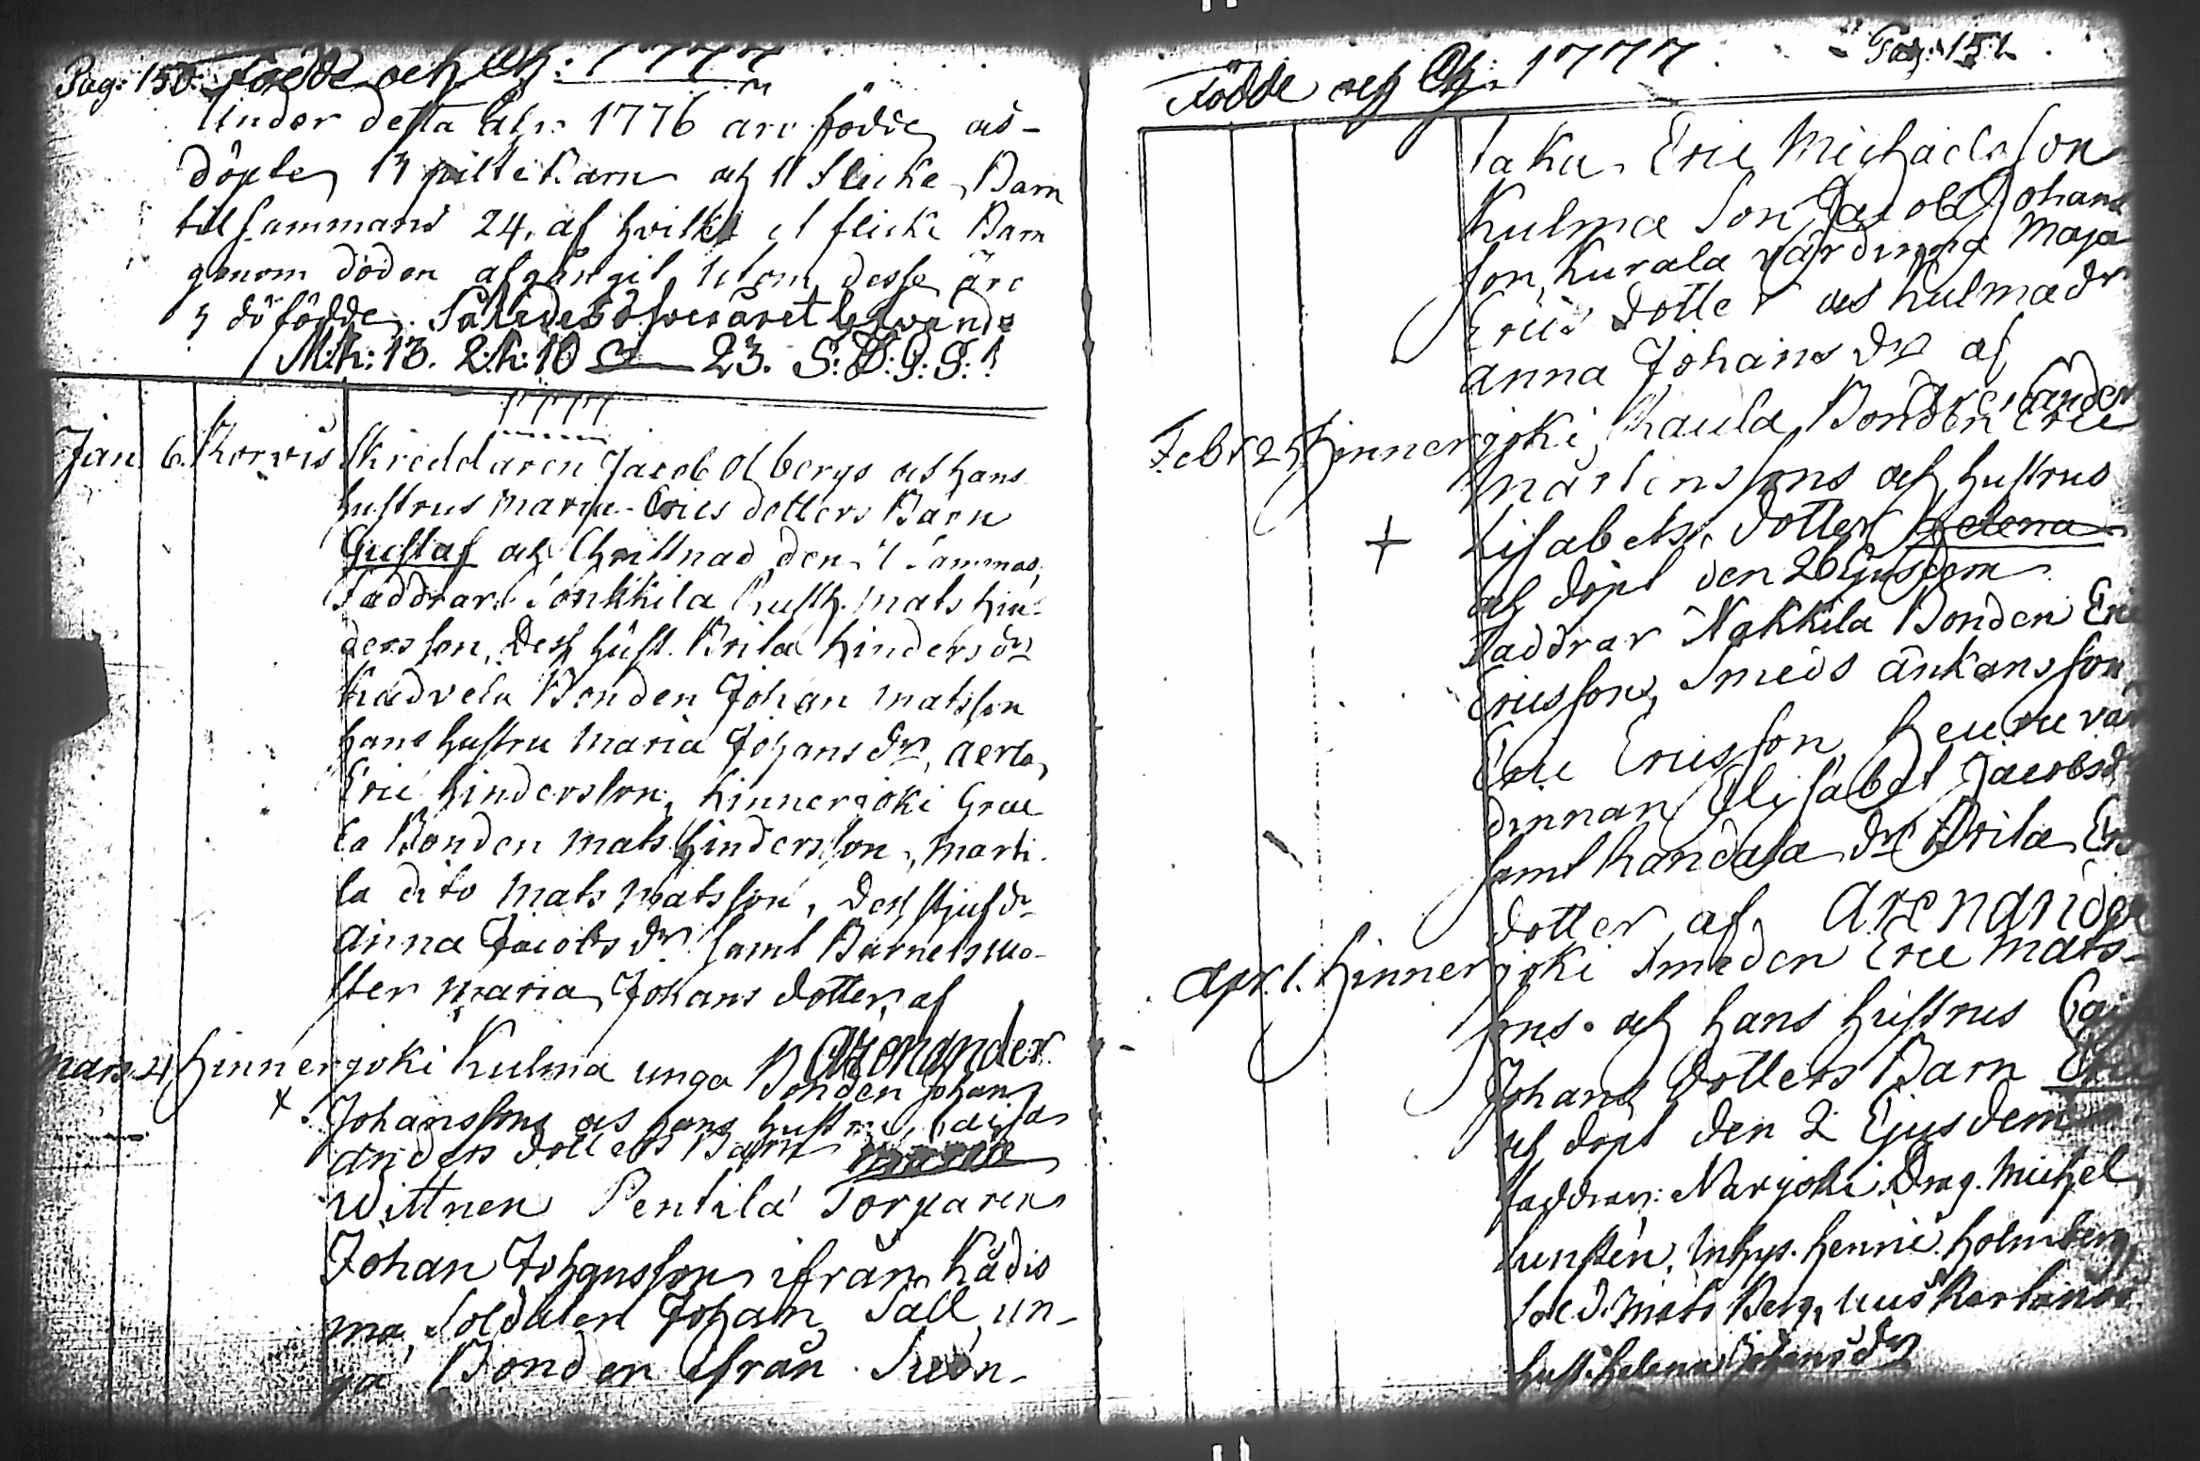 Pag: 150. Födde och Chr: 1777
Under detta åhr 1776 äro födde och
döpte, 13 pilte Barn och 11 flicke Barn
tillsammans 24. af hvilka et flicke Barn
genom döden afgångit, utom desse äre
3 dödfödde. Således öfver året lefvande
M:k: 13. Q:k: 10 23. S:D:G:G:!
1777
Jan. 6. Korvis Skreddaren Jacob Albergs och hans
hustrus Maria Erics dotters Barn
Gustaf och Christnad den 7 Sammas,
Faddrar: Sonkkila Mats Hin-
dersson, Dess hust. Brita Hinders dr
Kadvela Bonden Johan Matsson
hans hustru Maria Johans dr, Aerla
Eric Hindersson, Hinnerjoki Grae
la Bonden Mats Hindersson, Marti-
la dito Mats Matsson, Dess stjufdr
Anna Jacobs dr samt Barnets mo-
ster Maria Johans dotter af
Arenander
Mars 4. Hinnerjoki Kulma unga Bonden Johan
+ Johanssons och hans hustru Caisa
Anders dotters Barn Maria
Wittnen Pentilä Torparen
Johan Johansson ifrån Kådis
ma, Soldaten Johan Säll, un-
ga Bonden ifrån
Födde och Chr: 1777 Pag: 151
Eric Michaelsson
Kulma Son Jacob Johans
son, Kurala värdinna Maja
Erics dotter och Kulma dr
Anna Johans dr af
Arenander
Febr 25 Hinnerjoki, Kaula Bonden Eric
Mårtenssons och hustrus
+ Lisabets dotter Helena
och döpt den 26 Ejusdem
Faddrar Nakkila Bonden Eric
Ericsson, Smeds änkans son
Eric Ericsson, Heuru vär
dinnan Elisabet Jacobsdr
samt Handala dr Brita
dotter af Arenander
Apr. 1. Hinnerjoki Smeden Eric Mats-
sons och hans hustrus
Johans dotters Barn
och döpt den 2 Ejusdem
Faddrar: Narjoki Drag. Michel
Lunsten, Inhys. Henric Holmberg
Sold. Mats Berg,
hust. Helena dr